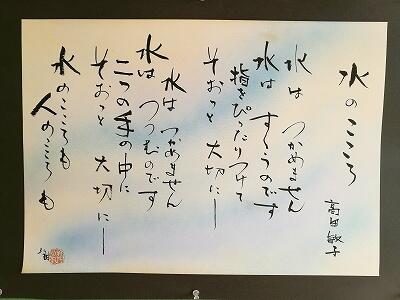 水のこころ
高田敏子
水は つかめません
水は すくうのです
指をぴったりつけて
そおっと 大切に―
水は つかめません
水は つつむのです
二つの手の中に
そおっと 大切に―
水のこころも
人のこころも